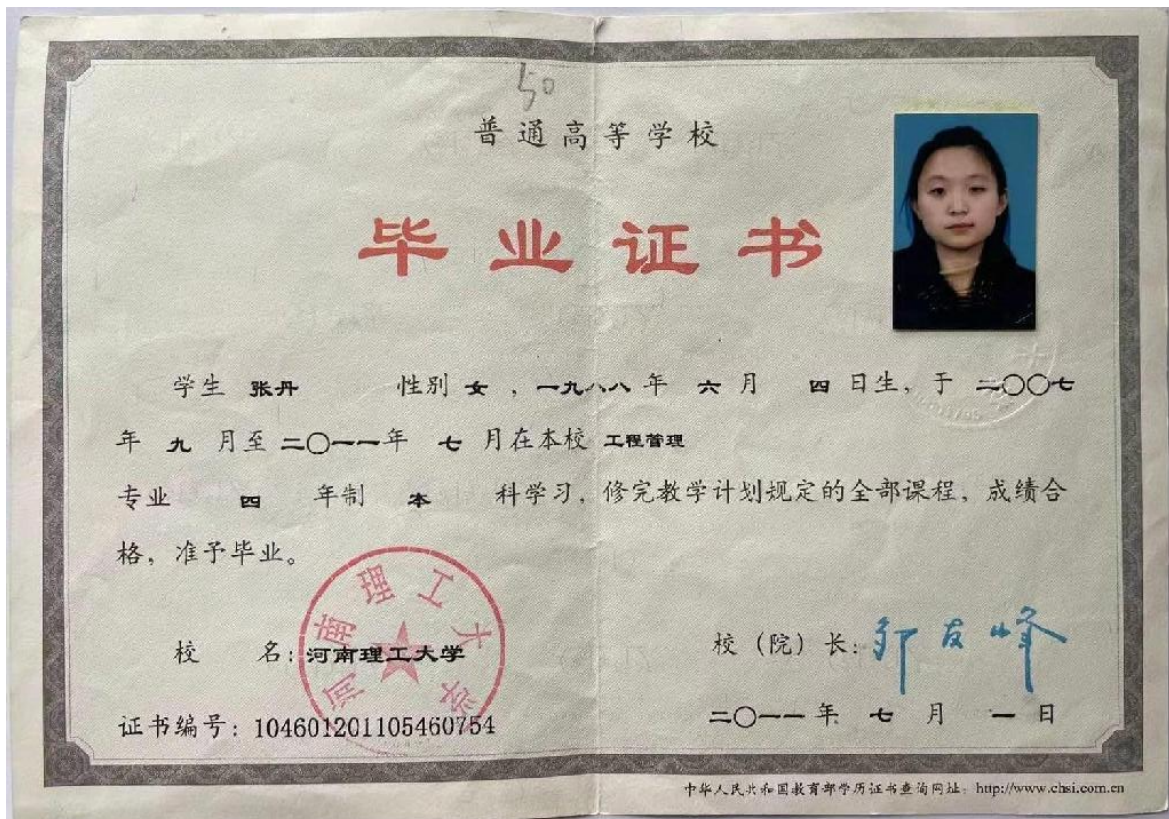 50
普通高等学校
毕业证书
学生 张丹 性别 女 ，一九八八 年 六 月 四 日生，于 二〇〇七
年 九 月至 二〇一一年 七 月在本校 工程管理
专业 四 年制 本 科学习，修完教学计划规定的全部课程，成绩合
格，准予毕业。
河南理工大学
校 名：河南理工大学
校（院）长：邹友峰
证书编号：104601201105460754
二〇一一 年 七 月 一 日
中华人民共和国教育部学历证书查询网址：http://www.chsi.com.cn